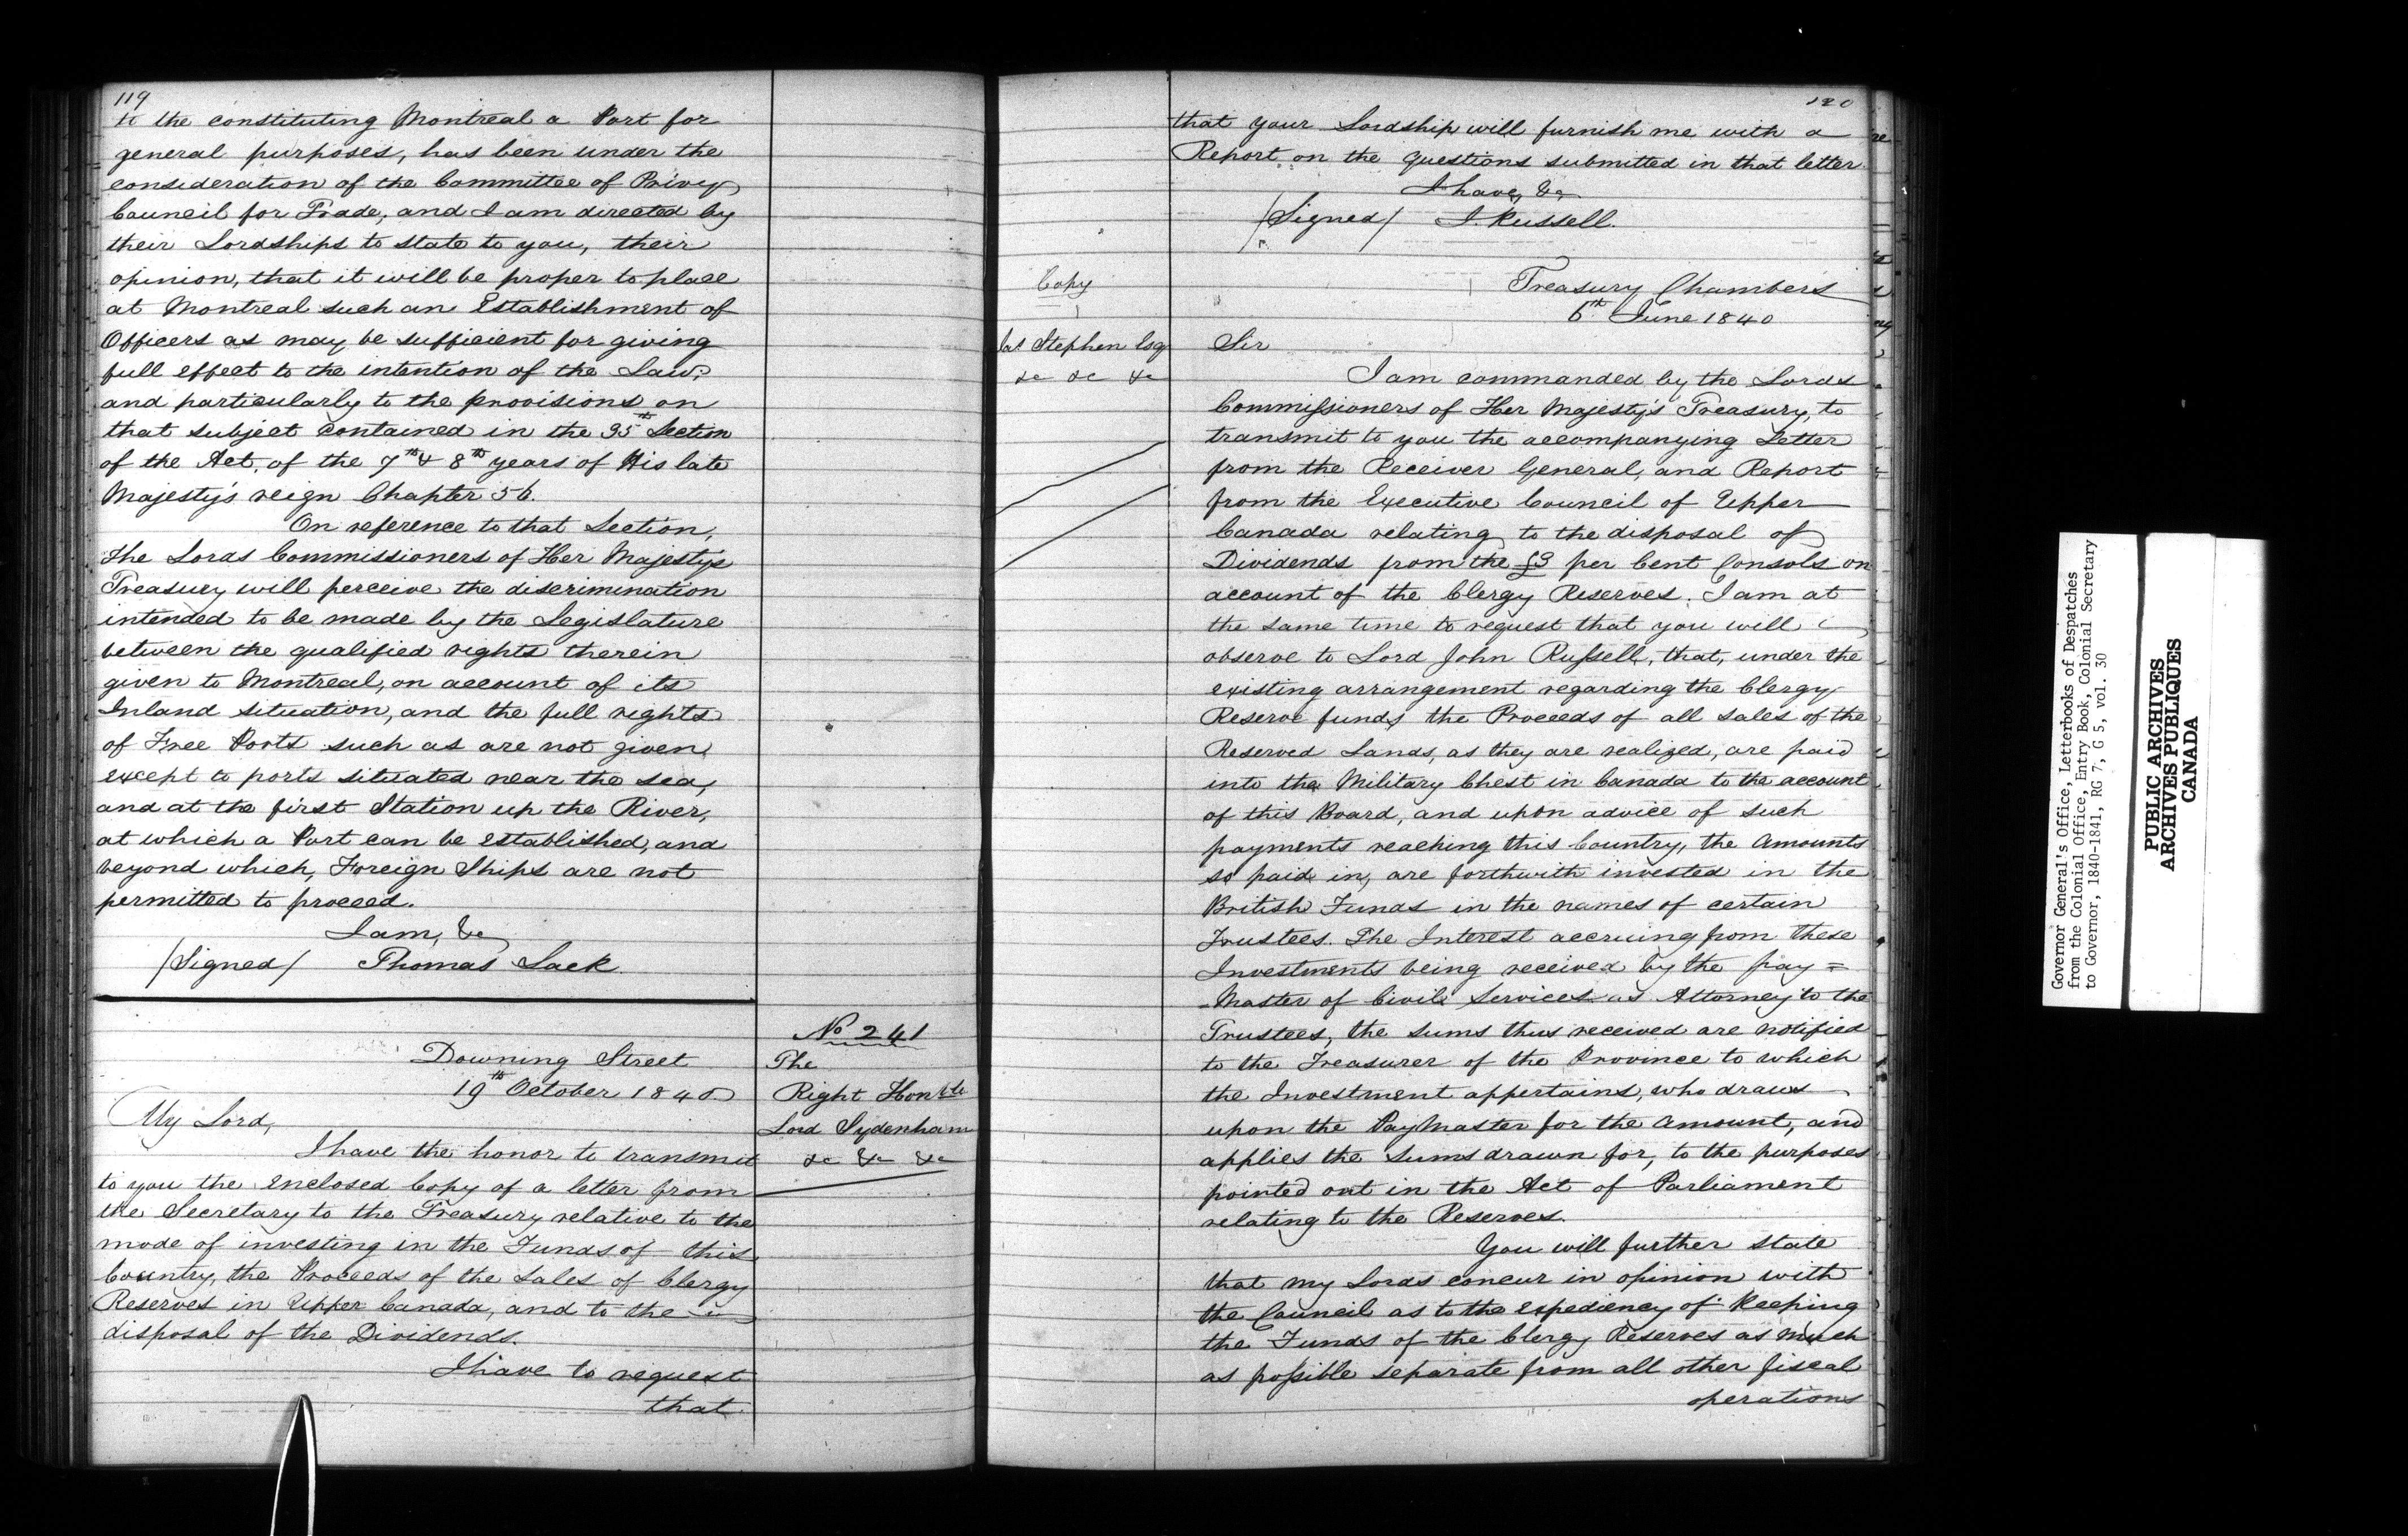 119
to the constituting Montreal a Port for
general purposes, has been under the
consideration of the Committee of Privy
Council for Trade, and I am directed by
their Lordships to state to you, their
opinion, that it will be proper to place
at Montreal such an Establishment of
Officers as may be sufficient for giving
full effect to the intention of the Law;
and particularly to the provisions on
that subject contained in the 35th Section
of the Act, of the 7th & 8th years of His late
Majesty's reign Chapter 56.
On reference to that Section,
the Lords Commissioners of Her Majestys
Treasury will perceive the discrimination
intended to be made by the Legislature
between the qualified rights therein
given to Montreal, on account of its
Inland situation, and the full rights
of Free Ports such as are not given
except to ports situated near the sea,
and at the first Station up the River,
at which a Port can be established, and
beyond which, Foreign Ships are not
permitted to proceed.
I am, &c
/Signed/ Thomas Lack.
No 241
The
Right Honble
Lord Sydenham
&c &c &c
Downing Street
19th October 1840
My Lord,
I have the honor to transmit
to you the enclosed Copy of a letter from
the Secretary to the Treasury relative to the
mode of investing in the Funds of this
Country, the Proceeds of the Sales of Clergy
Reserves in Upper Canada, and to the
disposal of the Dividends.
I have to request
that
120
that your Lordship will furnish me with a
Report on the questions submitted in that letter.
I have, &c
/Signed/ J. Russell.
Copy
Jas Stephen Esq
&c &c &c
Treasury Chambers
6th June 1840
Sir
I am commanded by the Lords
Commissioners of Her Majesty's Treasury, to
transmit to you the accompanying Letter
from the Receiver General, and Report
from the Executive Council of Upper
Canada relating to the disposal of
Dividends from the £3 per Cent Consols on
account of the Clergy Reserves. I am at
the same time to request that you will
observe to Lord John Russell, that, under the
existing arrangement regarding the Clergy
Reserve funds the Proceeds of all sales of the
Reserved Lands, as they are realized, are paid
into the Military Chest in Canada to the account
of this Board, and upon advice of such
payments reaching this Country, the Amounts
so paid in, are forthwith invested in the
British Funds in the names of certain
Trustees. The Interest accruing from these
Investments being received by the Pay=
-Master of Civil Services as Attorney to the
Trustees, the sums thus received are notified
to the Treasurer of the Province to which
the Investment appertains, who draws
upon the PayMaster for the Amount, and
applies the Sums drawn for, to the purposes
pointed out in the Act of Parliament
relating to the Reserves.
You will further state
that my Lords concur in opinion with
the Council as to the expediency of keeping
the Funds of the Clergy Reserves as much
as possible separate from all other fiscal
operations
Governor General's Office, Letterbooks of Despatches
from the Colonial Office, Entry Book, Colonial Secretary
to Governor, 1840-1841, RG 7, G 5, vol. 30
PUBLIC ARCHIVES
ARCHIVES PUBLIQUES
CANADA